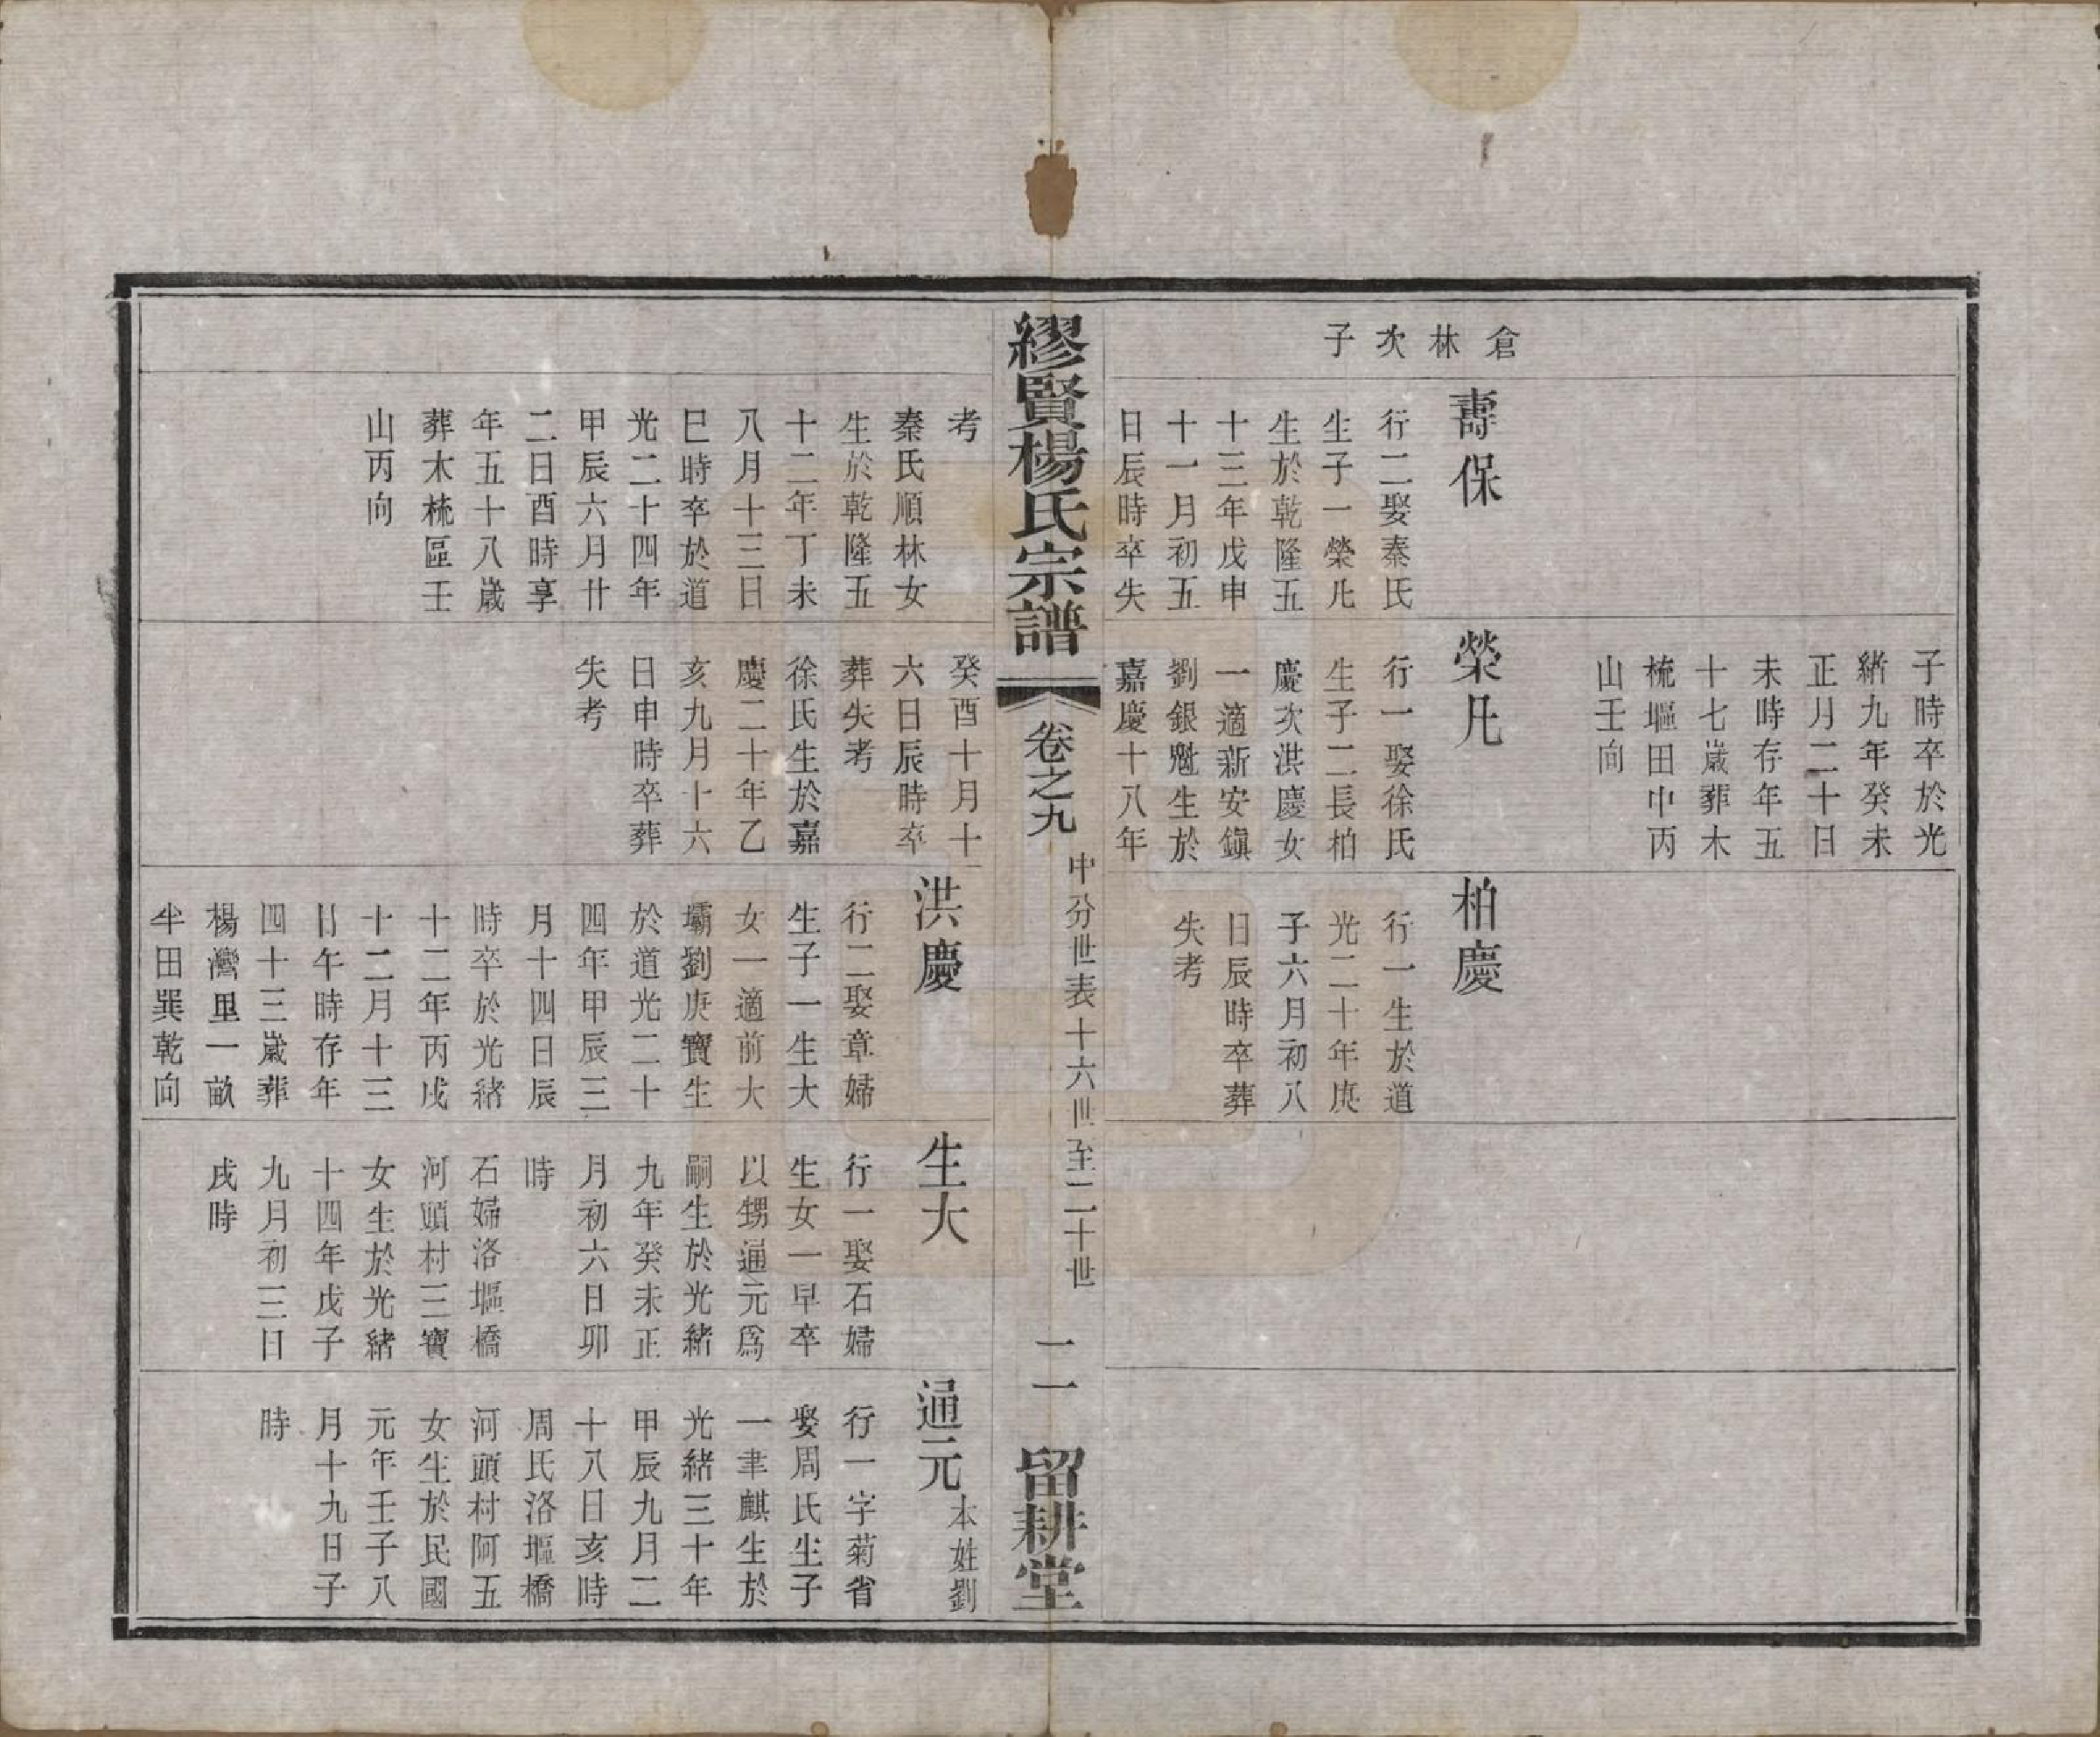 倉林次子
壽保
行二娶秦氏
生子一榮凡
生於乾隆五
十三年戊申
十一月初五
日辰時卒失
子時卒於光
緒九年癸未
正月二十日
未時存年五
十七歲葬木
梳塸田中丙
山壬向
榮凡
行一娶徐氏
生子二長柏
慶次洪慶女
一適新安鎮
劉銀魁生於
嘉慶十八年
柏慶
行一生於道
光二十年庚
子六月初八
日辰時卒葬
失考
繆賢楊氏宗譜
卷之九
中分世表十六世至二十世
二一
留耕堂
考
秦氏順林女
生於乾隆五
十二年丁未
八月十三日
巳時卒於道
光二十四年
甲辰六月廿
二日酉時享
年五十八歲
葬木梳區壬
山丙向
癸酉十月十
六日辰時卒
葬失考
徐氏生於嘉
慶二十年乙
亥九月十六
日申時卒葬
失考
洪慶
行二娶章婦
生子一生大
女一適前大
壩劉庚寶生
於道光二十
四年甲辰三
月十四日辰
時卒於光緒
十二年丙戌
十二月十三
日午時存年
四十三歲葬
楊灣里一畝
半田巽乾向
生大
行一娶石婦
生女一早卒
以甥通元爲
嗣生於光緒
九年癸未正
月初六日卯
時
石婦洛塸橋
河頭村三寶
女生於光緒
十四年戊子
九月初三日
戌時
通元
本姓劉
行一字菊省
娶周氏生子
一聿麒生於
光緒三十年
甲辰九月二
十八日亥時
周氏洛塸橋
河頭村阿五
女生於民國
元年壬子八
月十九日子
時